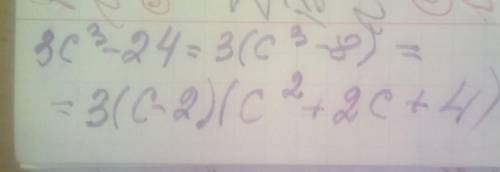 3c³-24=3(c³-8)=
=3(c-2)(c²+2c+4)